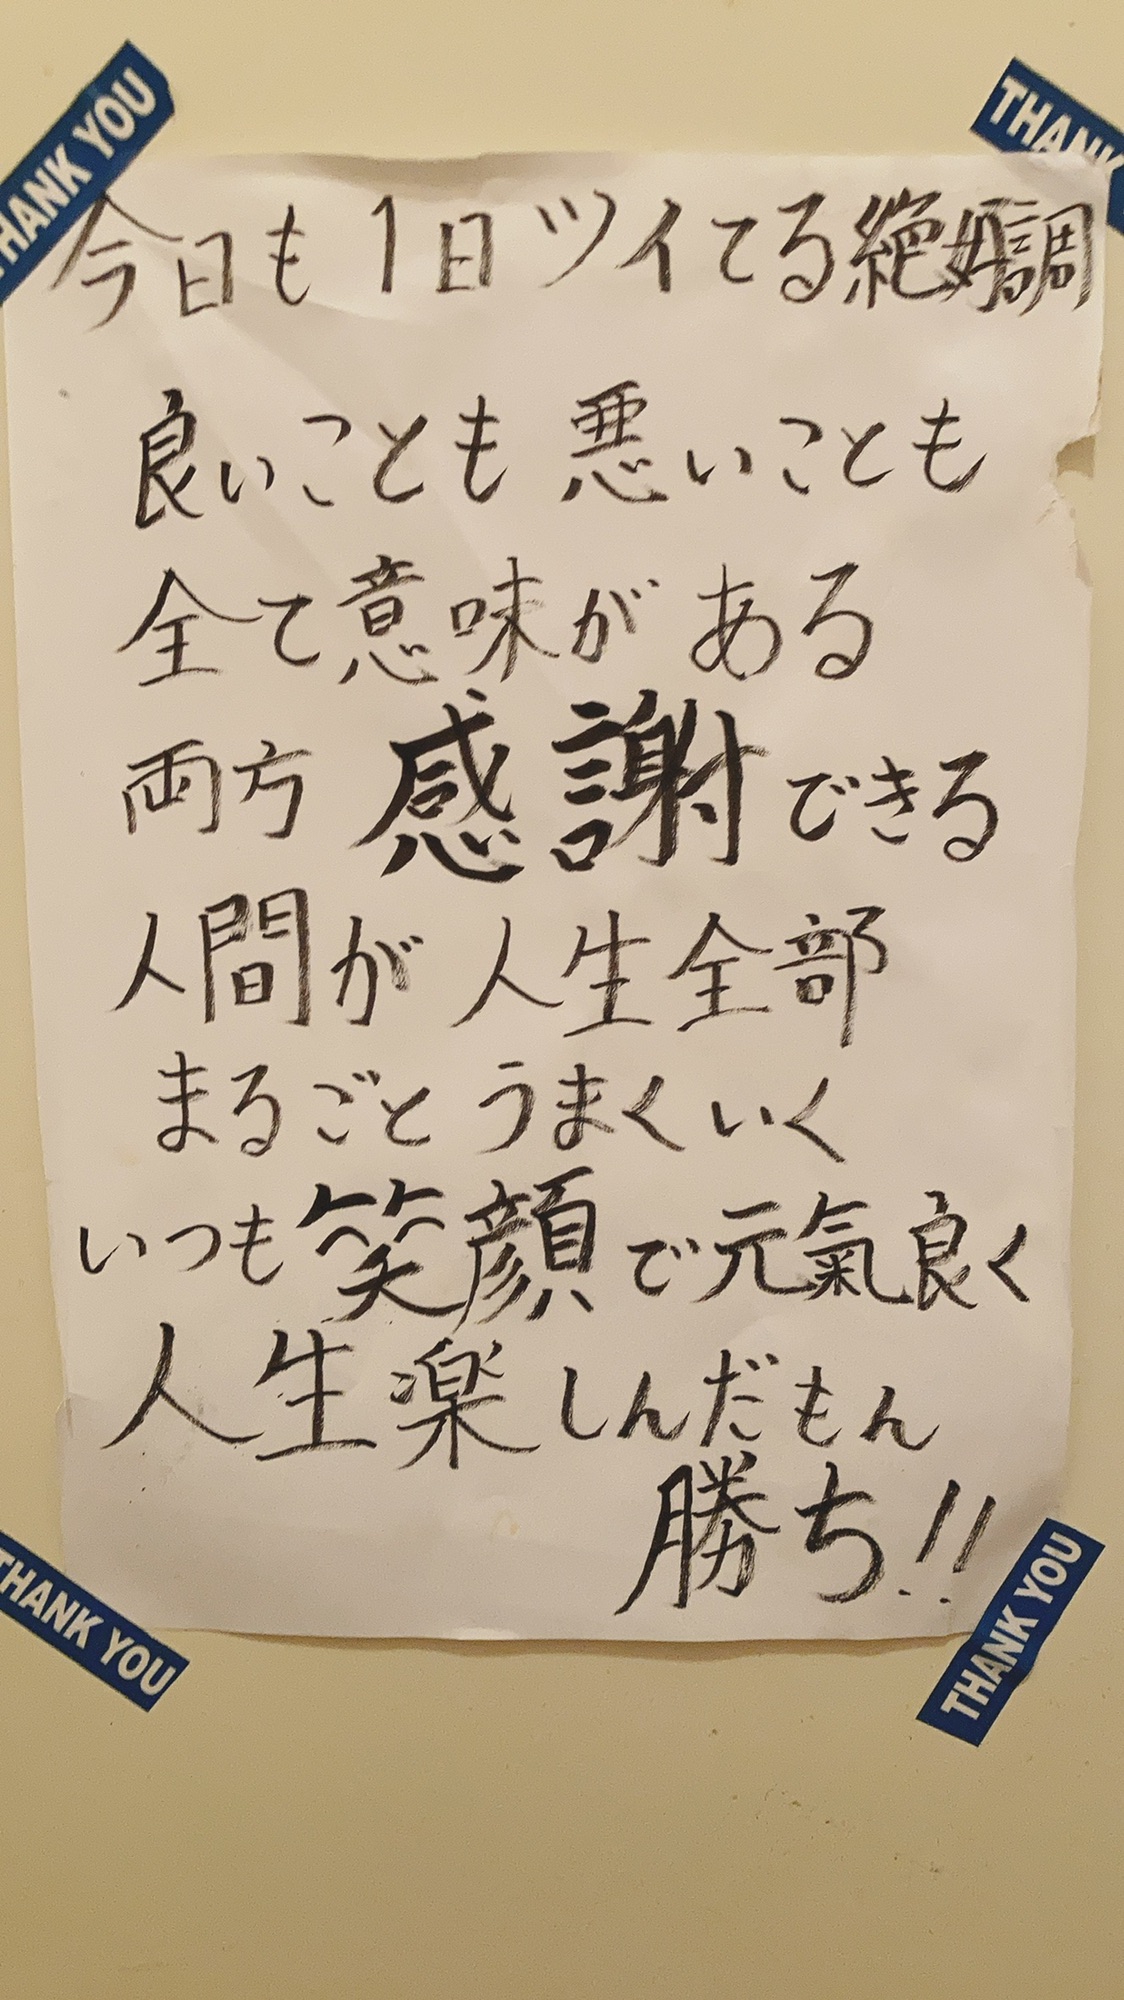 THANK YOU
THANK
今日も1日ツイてる絶好調
良いことも悪いことも
全て意味がある
両方感謝できる
人間が人生全部
まるごとうまくいく
いつも笑顔で元氣良く
人生楽しんだもん
勝ち!!
THANK YOU
THANK YOU